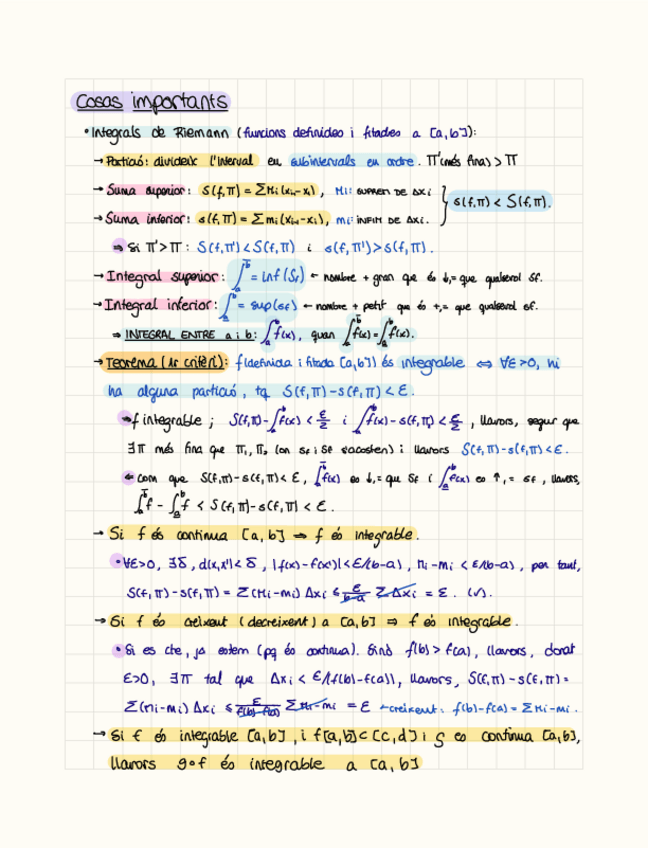 Cosas importants
• Integrals de Riemann (funcions definides i fitades a [a,b]):
→ Partició: divideix l'interval en subintervals en ordre. Π'(més fina) > Π
→ Suma superior: S(f,Π) = ΣMi(xi+1-xi), Mi: SUPREM DE Δxi
s(f,Π) < S(f,Π).
→ Suma inferior: s(f,Π) = Σmi(xi+1-xi), mi: INFIM DE Δxi.
⇒ Si Π'>Π: S(f,Π')<S(f,Π) i s(f,Π')>s(f,Π).
→ Integral superior: ∫ = inf(Sf) ← nombre + gran que és ↓,= que qualsevol Sf.
→ Integral inferior: ∫ = sup(sf) ← nombre + petit que és +,= que qualsevol sf.
⇒ INTEGRAL ENTRE a i b: ∫f(x), quan ∫f(x)=∫f(x).
→ Teorema (1r criteri): f(definida i fitada [a,b]) és integrable ⇔ ∀ε>0, hi
ha alguna partició, tq S(f,Π)-s(f,Π)<ε.
⇒ f integrable; S(f,Π)-∫f(x)<ε/2 i ∫f(x)-s(f,Π)<ε/2, llavors, segur que
∃Π més fina que Π1, Π2 (on Sf i sf s'acosten) i llavors S(f,Π)-s(f,Π)<ε.
⇐ com que S(f,Π)-s(f,Π)<ε, ∫f(x) es ↓,= que Sf i ∫f(x) es ↑,= sf, llavors,
∫f - ∫f < S(f,Π)-s(f,Π)<ε.
→ Si f és contínua [a,b] ⇒ f és integrable.
• ∀ε>0, ∃δ, d(x,x')<δ, |f(x)-f(x')|<ε/(b-a), Mi-mi<ε/(b-a), per tant,
S(f,Π)-s(f,Π) = Σ(Mi-mi)Δxi ≤ ε/b-a ΣΔxi = ε. (✓).
→ Si f és creixent (decreixent) a [a,b] ⇒ f és integrable.
• Si es cte, ja estem (pq és contínua). Sinó f(b)>f(a), llavors, donat
ε>0, ∃Π tal que Δxi<ε/(f(b)-f(a)), llavors, S(f,Π)-s(f,Π)=
Σ(Mi-mi)Δxi ≤ ε/f(b)-f(a) ΣMi-mi = ε ←creixent: f(b)-f(a)=ΣMi-mi.
→ Si f és integrable [a,b], i f[a,b]⊂[c,d] i g es contínua [a,b],
llavors g∘f és integrable a [a,b]